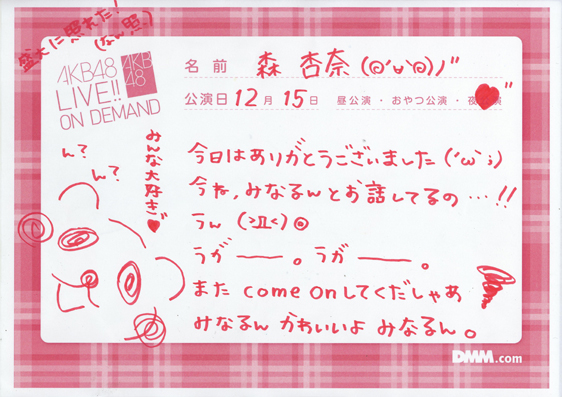 盛大に照れた!
(なん照)
AKB48
LIVE!!
ON DEMAND
AKB
48
名前 森 杏奈 (◎'ν'◎)ノ"
公演日 12月 15日 昼公演・おやつ公演・夜公演
みんな大好き♥
ん?
ん?
今日はありがとうございました('ω';)
今ね,みなるんとお話してるの…!!
うん (>Д<)◎
うがー。うがー。
また come onしてくだしゃあ
みなるん かわいいよ みなるん。
DMM.com